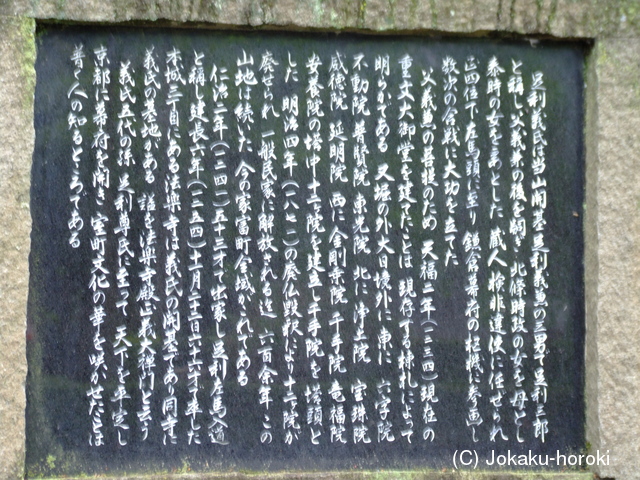 足利義氏は当山開基足利義兼の三男で足利三郎
と称し父義兼の後を嗣ぎ 北條時政の女を母とし
泰時の女を妻とした 蔵人 検非違使に任ぜられ
正四位下左馬頭に至り 鎌倉幕府の枢機に参画し
数次の合戦に大功を立てた
父義兼の菩提のため 天福二年(一二三四)現在の
重文大御堂を建てたことは 現存する棟札によって
明らかである 又堀の外大日境外に 東に 六字院
不動院 普賢院 東光院 北に 浄土院 宝珠院
威徳院 延明院 西に 金剛乗院 千手院 竜福院
安養院の塔中十二院を建立し千手院を塔頭と
した 明治四年(一八七一)の廃仏毀釈により十二院が
廃せられ 一般民家に解放される迄 六百余年この
山地は続いた 今の家富町全域がこれである
仁治二年(一二四一)五十三才で出家し足利左馬入道
と称し建長六年(一二五四)十一月二十一日六十六才で卒した
本城三丁目にある法楽寺は義氏の開基であり同寺に
義氏の墓地がある 諡を法楽寺殿正義大禅門と云う
義氏五代の孫 足利尊氏に至って 天下を平定し
京都に幕府を開き 室町文化の華を咲かせたことは
普く人の知るところである
(C) Jokaku-horoki